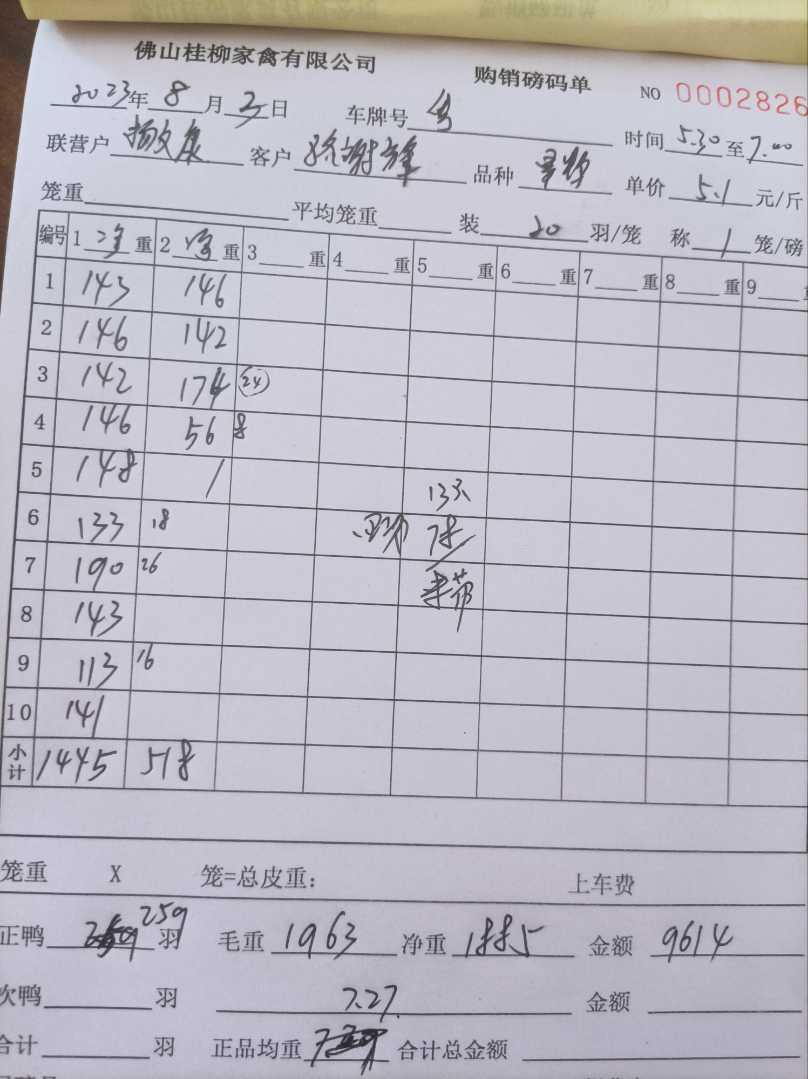 佛山桂柳家禽有限公司 购销磅码单 NO 0002826
2023年 8 月 2 日 车牌号
联营户 客户 品种 时间 5.30 至 7.00
单价 5.1 元/斤
笼重 平均笼重 装 20 羽/笼 称 1 笼/磅
编号 1 净 重 2 净 重 3 重 4 重 5 重 6 重 7 重 8 重 9
1 143 146
2 146 142
3 142 174 24
4 146 56 8
5 148 /
6 133 18
7 190 26 78
8 143
9 113 16
10 141
小计 1445 518
笼重 X 笼=总皮重: 上车费
正鸭 259 羽 毛重 1963 净重 1885 金额 9614
次鸭 羽 7.27 金额
合计 羽 正品均重 合计总金额